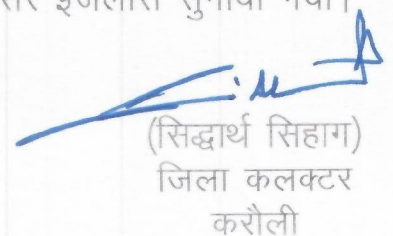 इजलास सुनाया गया।
(सिद्धार्थ सिहाग)
जिला कलक्टर
करौली